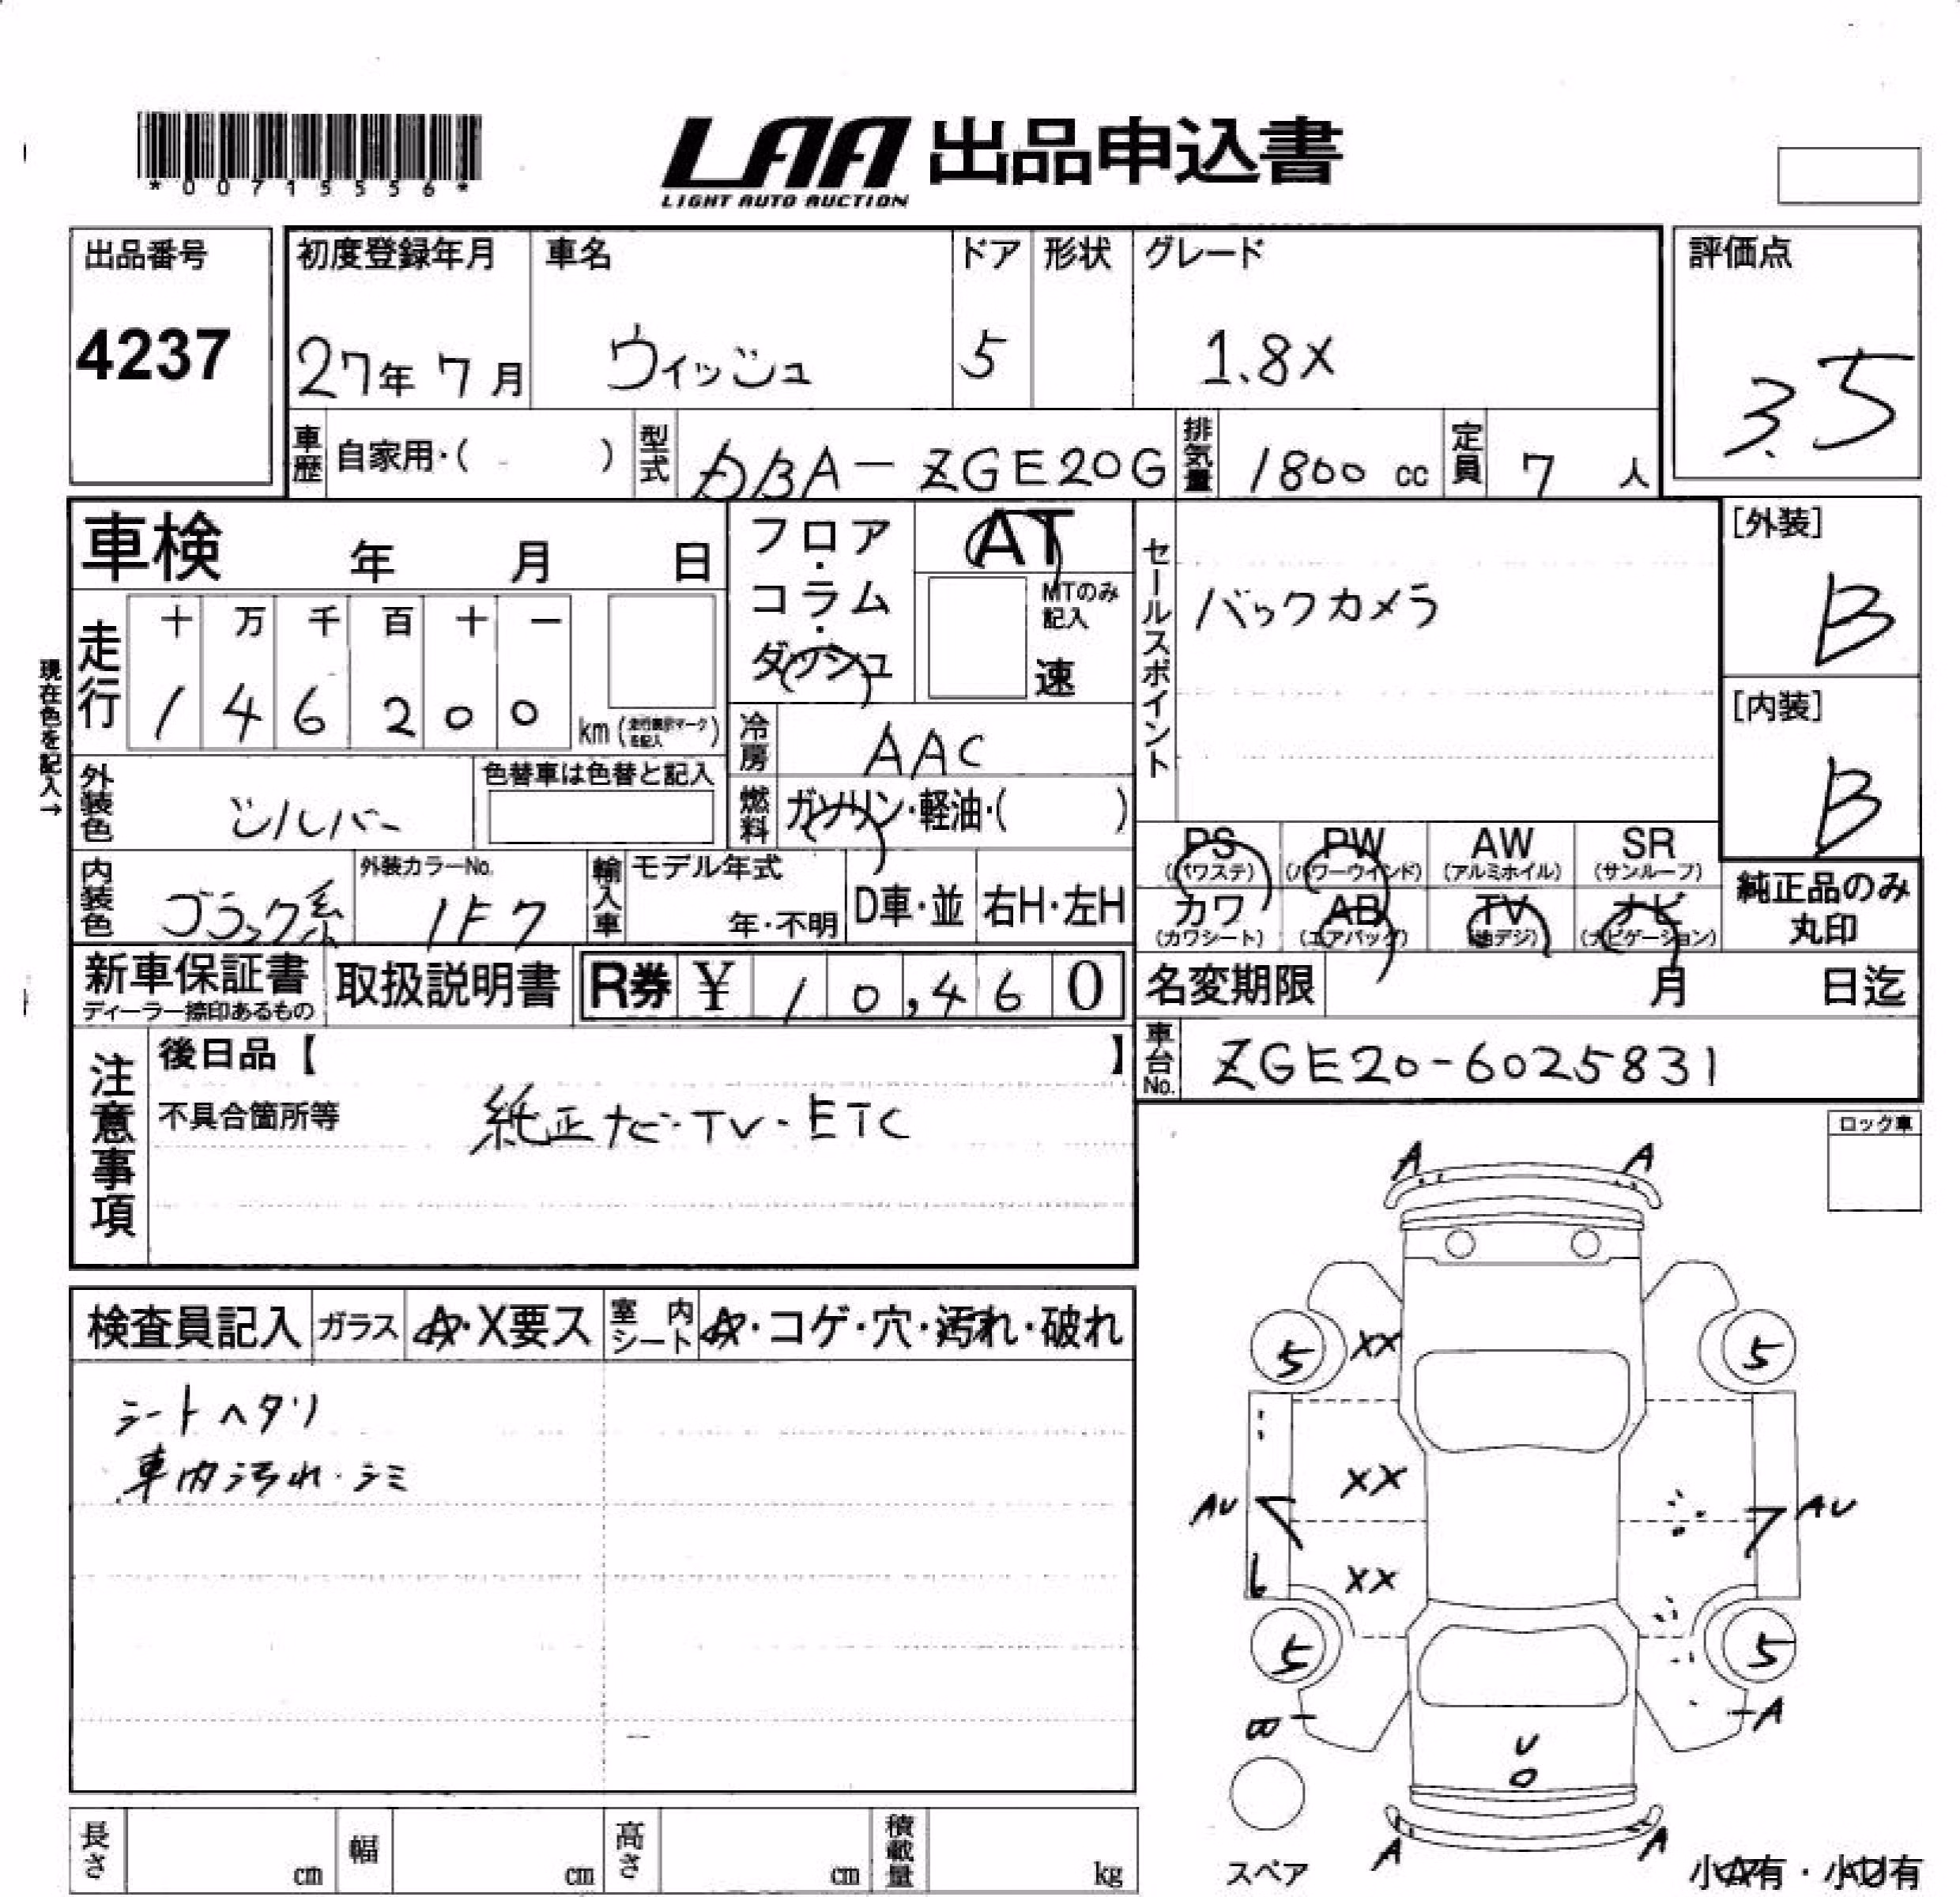 *00715556*
LAA 出品申込書
LIGHT AUTO AUCTION
出品番号
4237
初度登録年月
27年 7月
車名
ウィッシュ
ドア
5
形状
グレード
1.8X
評価点
3.5
車歴 自家用・( )
型式 DBA-ZGE20G
排気量 1800 cc
定員 7 人
車検 年 月 日
フロア・コラム・ダッシュ
AT
MTのみ記入
速
セールスポイント
バックカメラ
[外装]
B
[内装]
B
現在色を記入→
走行
十 万 千 百 十 一
1 4 6 2 0 0 km
冷房 AAC
燃料 ガソリン・軽油・( )
外装色 シルバー
色替車は色替と記入
内装色 ブラック系
外装カラーNo.
1F7
輸入車
モデル年式
年・不明
D車・並 右H・左H
PS (パワステ)
PW (パワーウインド)
AW (アルミホイル)
SR (サンルーフ)
カワ (カワシート)
AB (エアバッグ)
TV (地デジ)
ナビ (ナビゲーション)
純正品のみ
丸印
新車保証書
ディーラー捺印あるもの
取扱説明書
R券 ¥ 10,460
名変期限 月 日迄
車台No. ZGE20-6025831
注意事項
後日品【 】
不具合箇所等
純正ナビ・TV・ETC
ロック車
検査員記入
ガラス A・X要ス
室内シート
・コゲ・穴・汚れ・破れ
シートヘタリ
車内汚れ・シミ
A A
5 XX 5
XX
AU AU
XX
5 5
A
U
A A
スペア
小A有・小U有
長さ cm
幅 cm
高さ cm
積載量 kg